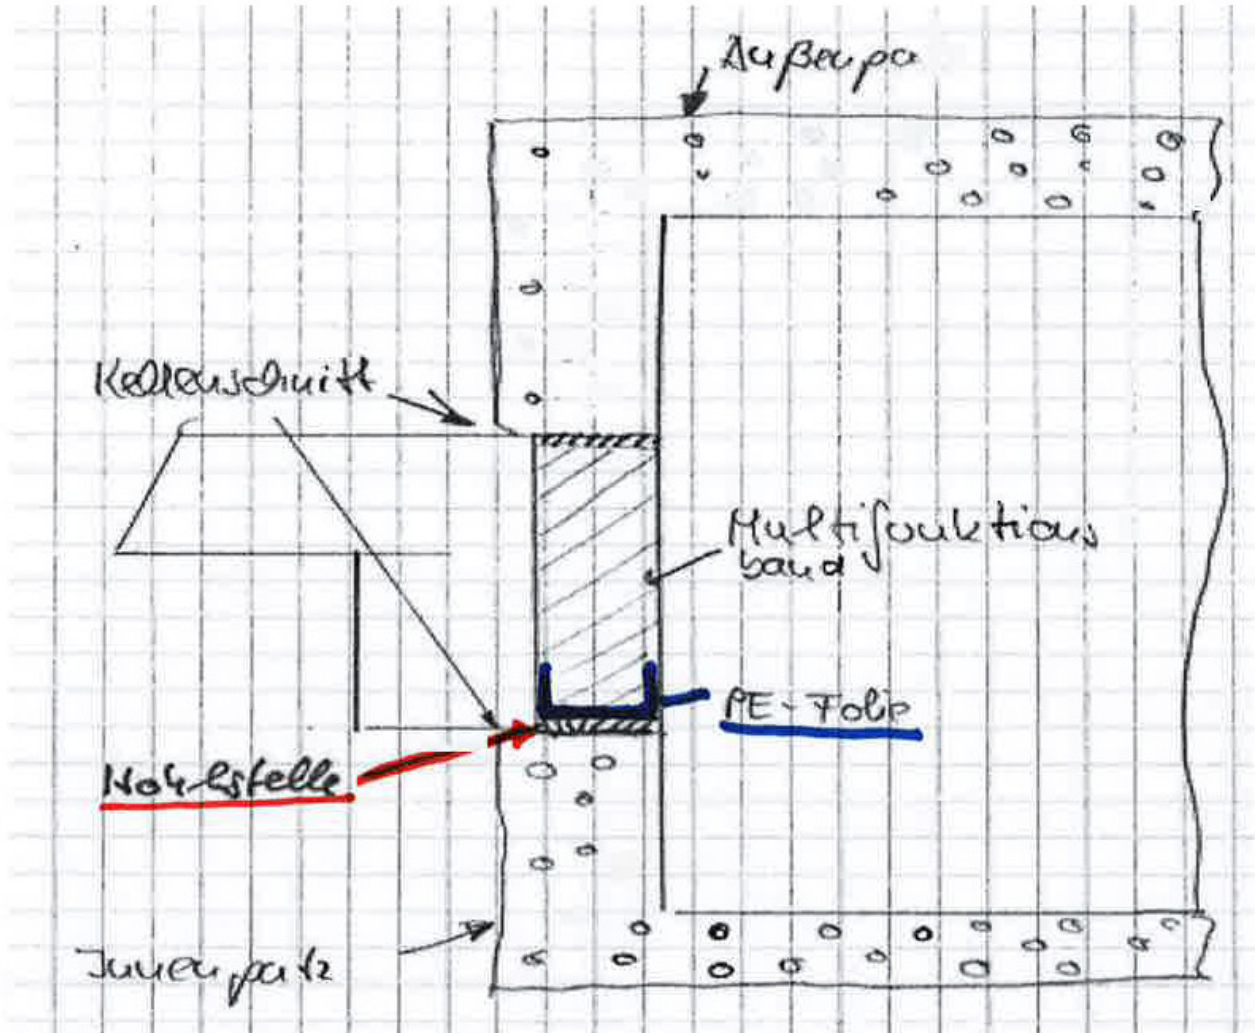 Außenpu
Kellenschnitt
Multifunktions
band
PE-Folie
Hohlstelle
Innenputz